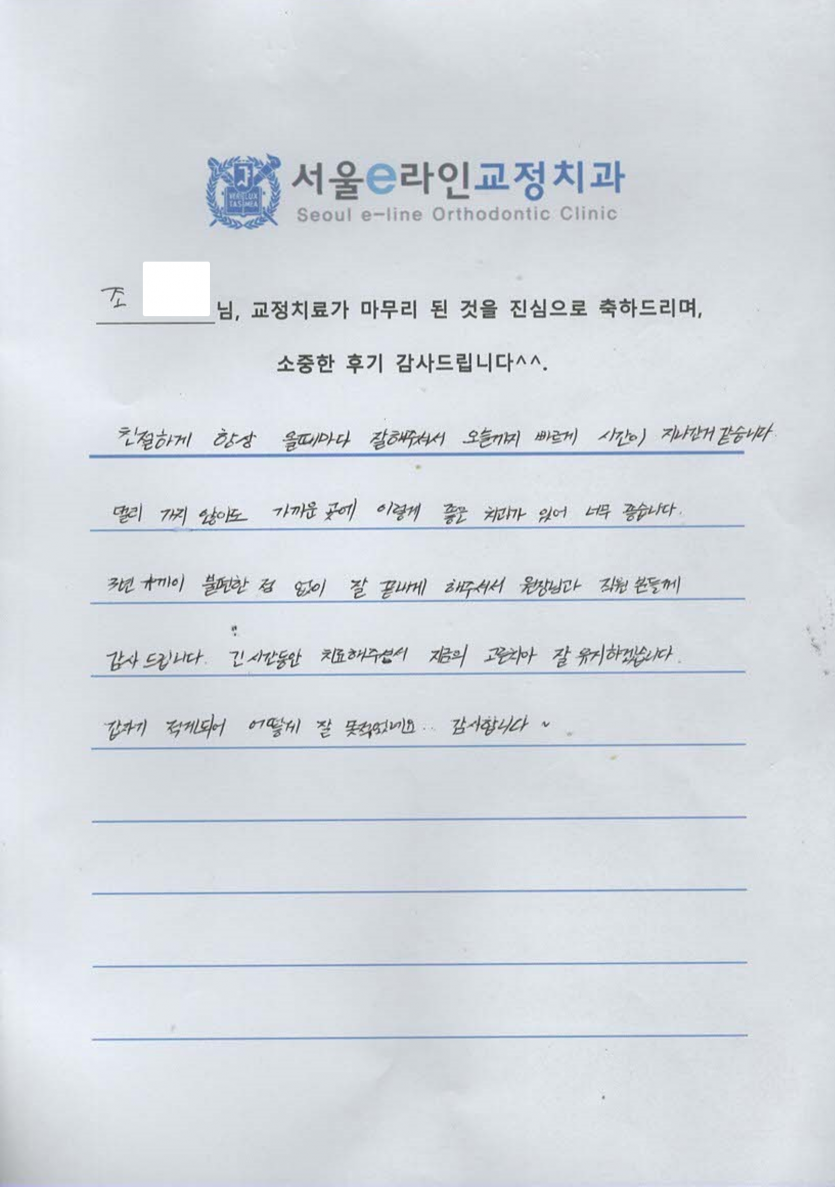 서울e라인교정치과
Seoul e-line Orthodontic Clinic
조 님, 교정치료가 마무리 된 것을 진심으로 축하드리며,
소중한 후기 감사드립니다^^.
친절하게 항상 올때마다 잘해주셔서 오늘까지 빠르게 시간이 지나간거 같습니다
멀리 가지 않아도 가까운 곳에 이렇게 좋은 치과가 있어 너무 좋습니다.
3년 불편한 점 없이 잘 끝내게 해주셔서 원장님과 직원 분들께
감사 드립니다. 긴 시간동안 치료해주셔서 지금의 고른치아 잘 유지하겠습니다.
갑자기 적게되어 어떻게 잘 못적었네요.. 감사합니다 ~